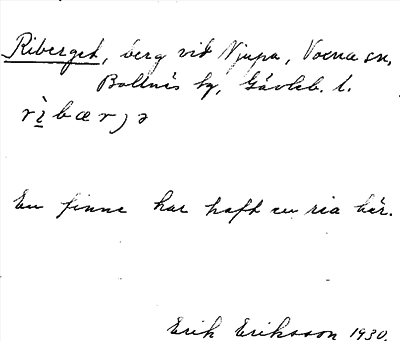 Riberget, berg vid Njupa, Voxna sn,
Bollnäs tg, Gävleb. l.
rìbærjə
En finne har haft en ria här.
Erik Eriksson 1930.